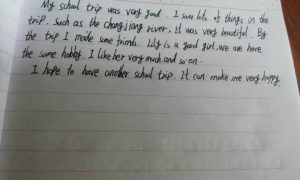 My school trip was very good. I saw lots of things in the
trip. such as the changjiang river, it was very beautiful. By
the trip I made some friends. Lily is a good girl. we are have
the same hobby. I like her very much. and so on.
I hope to have another school trip. It can make me very happy.